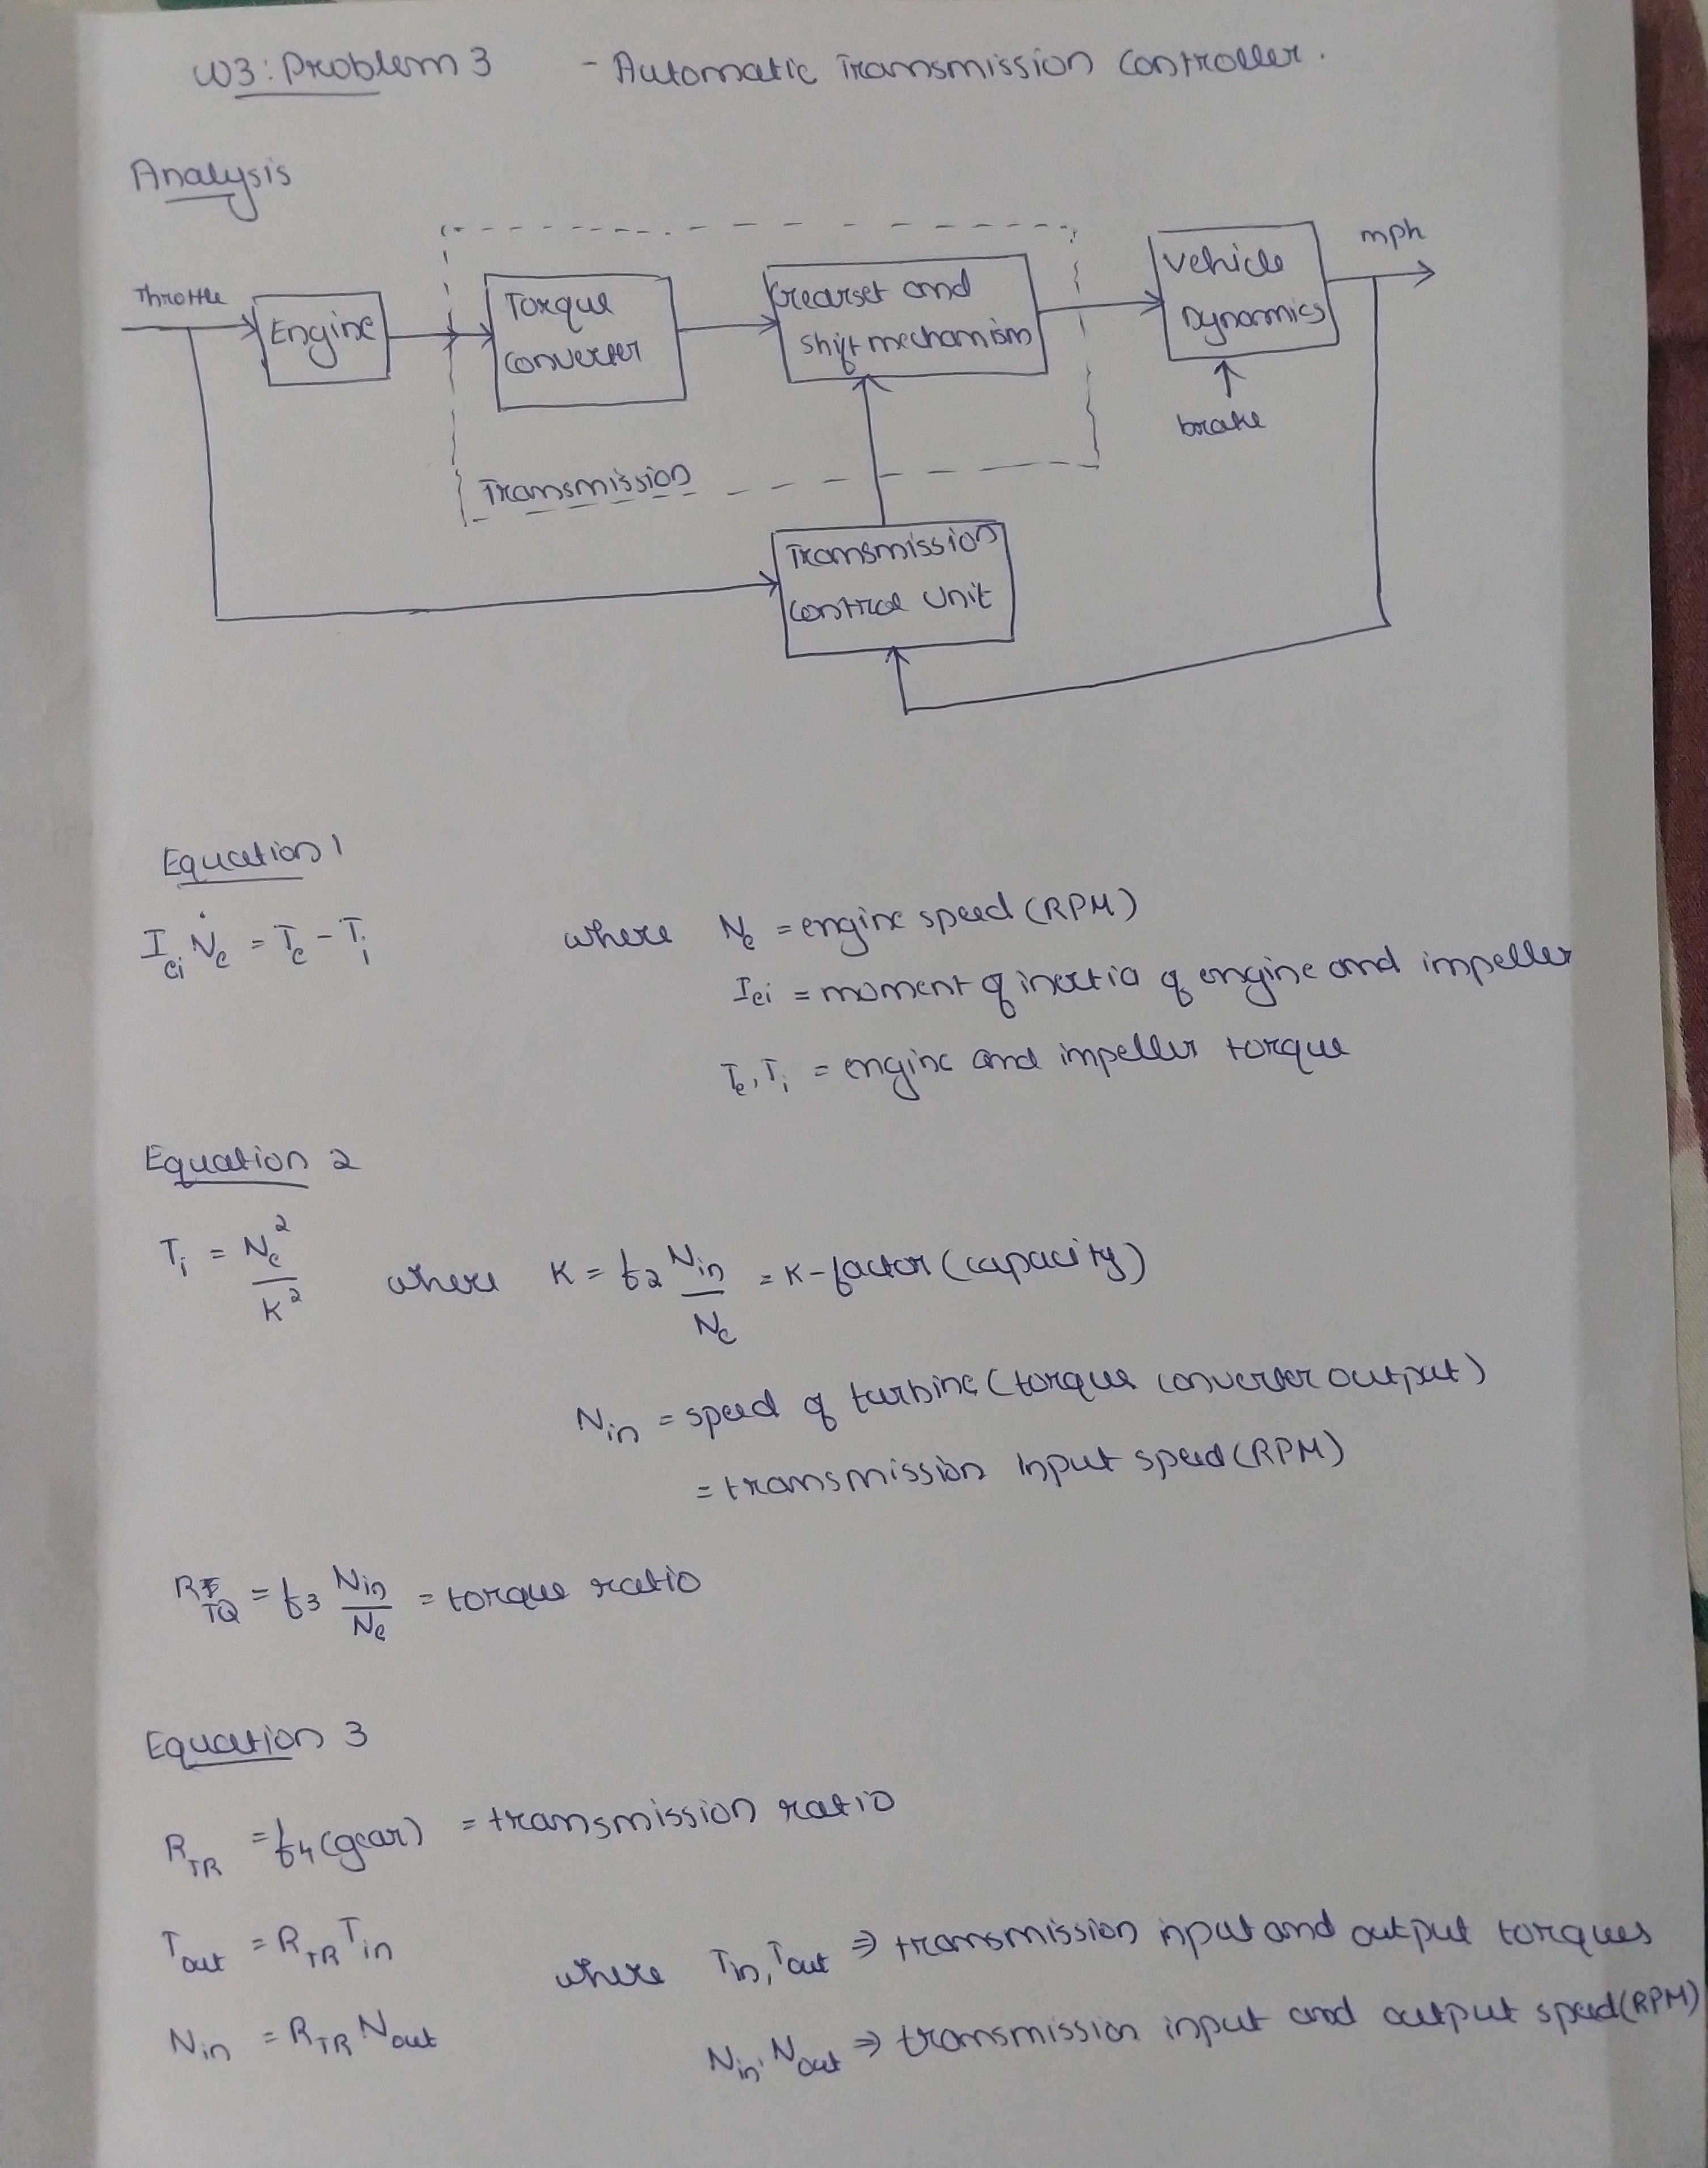 W3: Problem 3 - Automatic Transmission Controller.
Analysis
Throttle
Engine
Torque
Converter
Gearset and
shift mechanism
Vehicle
Dynamics
mph
brake
Transmission
Transmission
Control Unit
Equation 1
I_ei Ṅ_e = T_e - T_i where N_e = engine speed (RPM)
I_ei = moment of inertia of engine and impeller
T_e, T_i = engine and impeller torque
Equation 2
T_i = N_e² / K² where K = f2 N_in / N_e = K-factor (capacity)
N_in = speed of turbine (torque converter output)
= transmission input speed (RPM)
R_TQ = f3 N_in / N_e = torque ratio
Equation 3
R_TR = f4 (gear) = transmission ratio
T_out = R_TR T_in where T_in, T_out ⇒ transmission input and output torques
N_in = R_TR N_out N_in, N_out ⇒ transmission input and output speed (RPM)